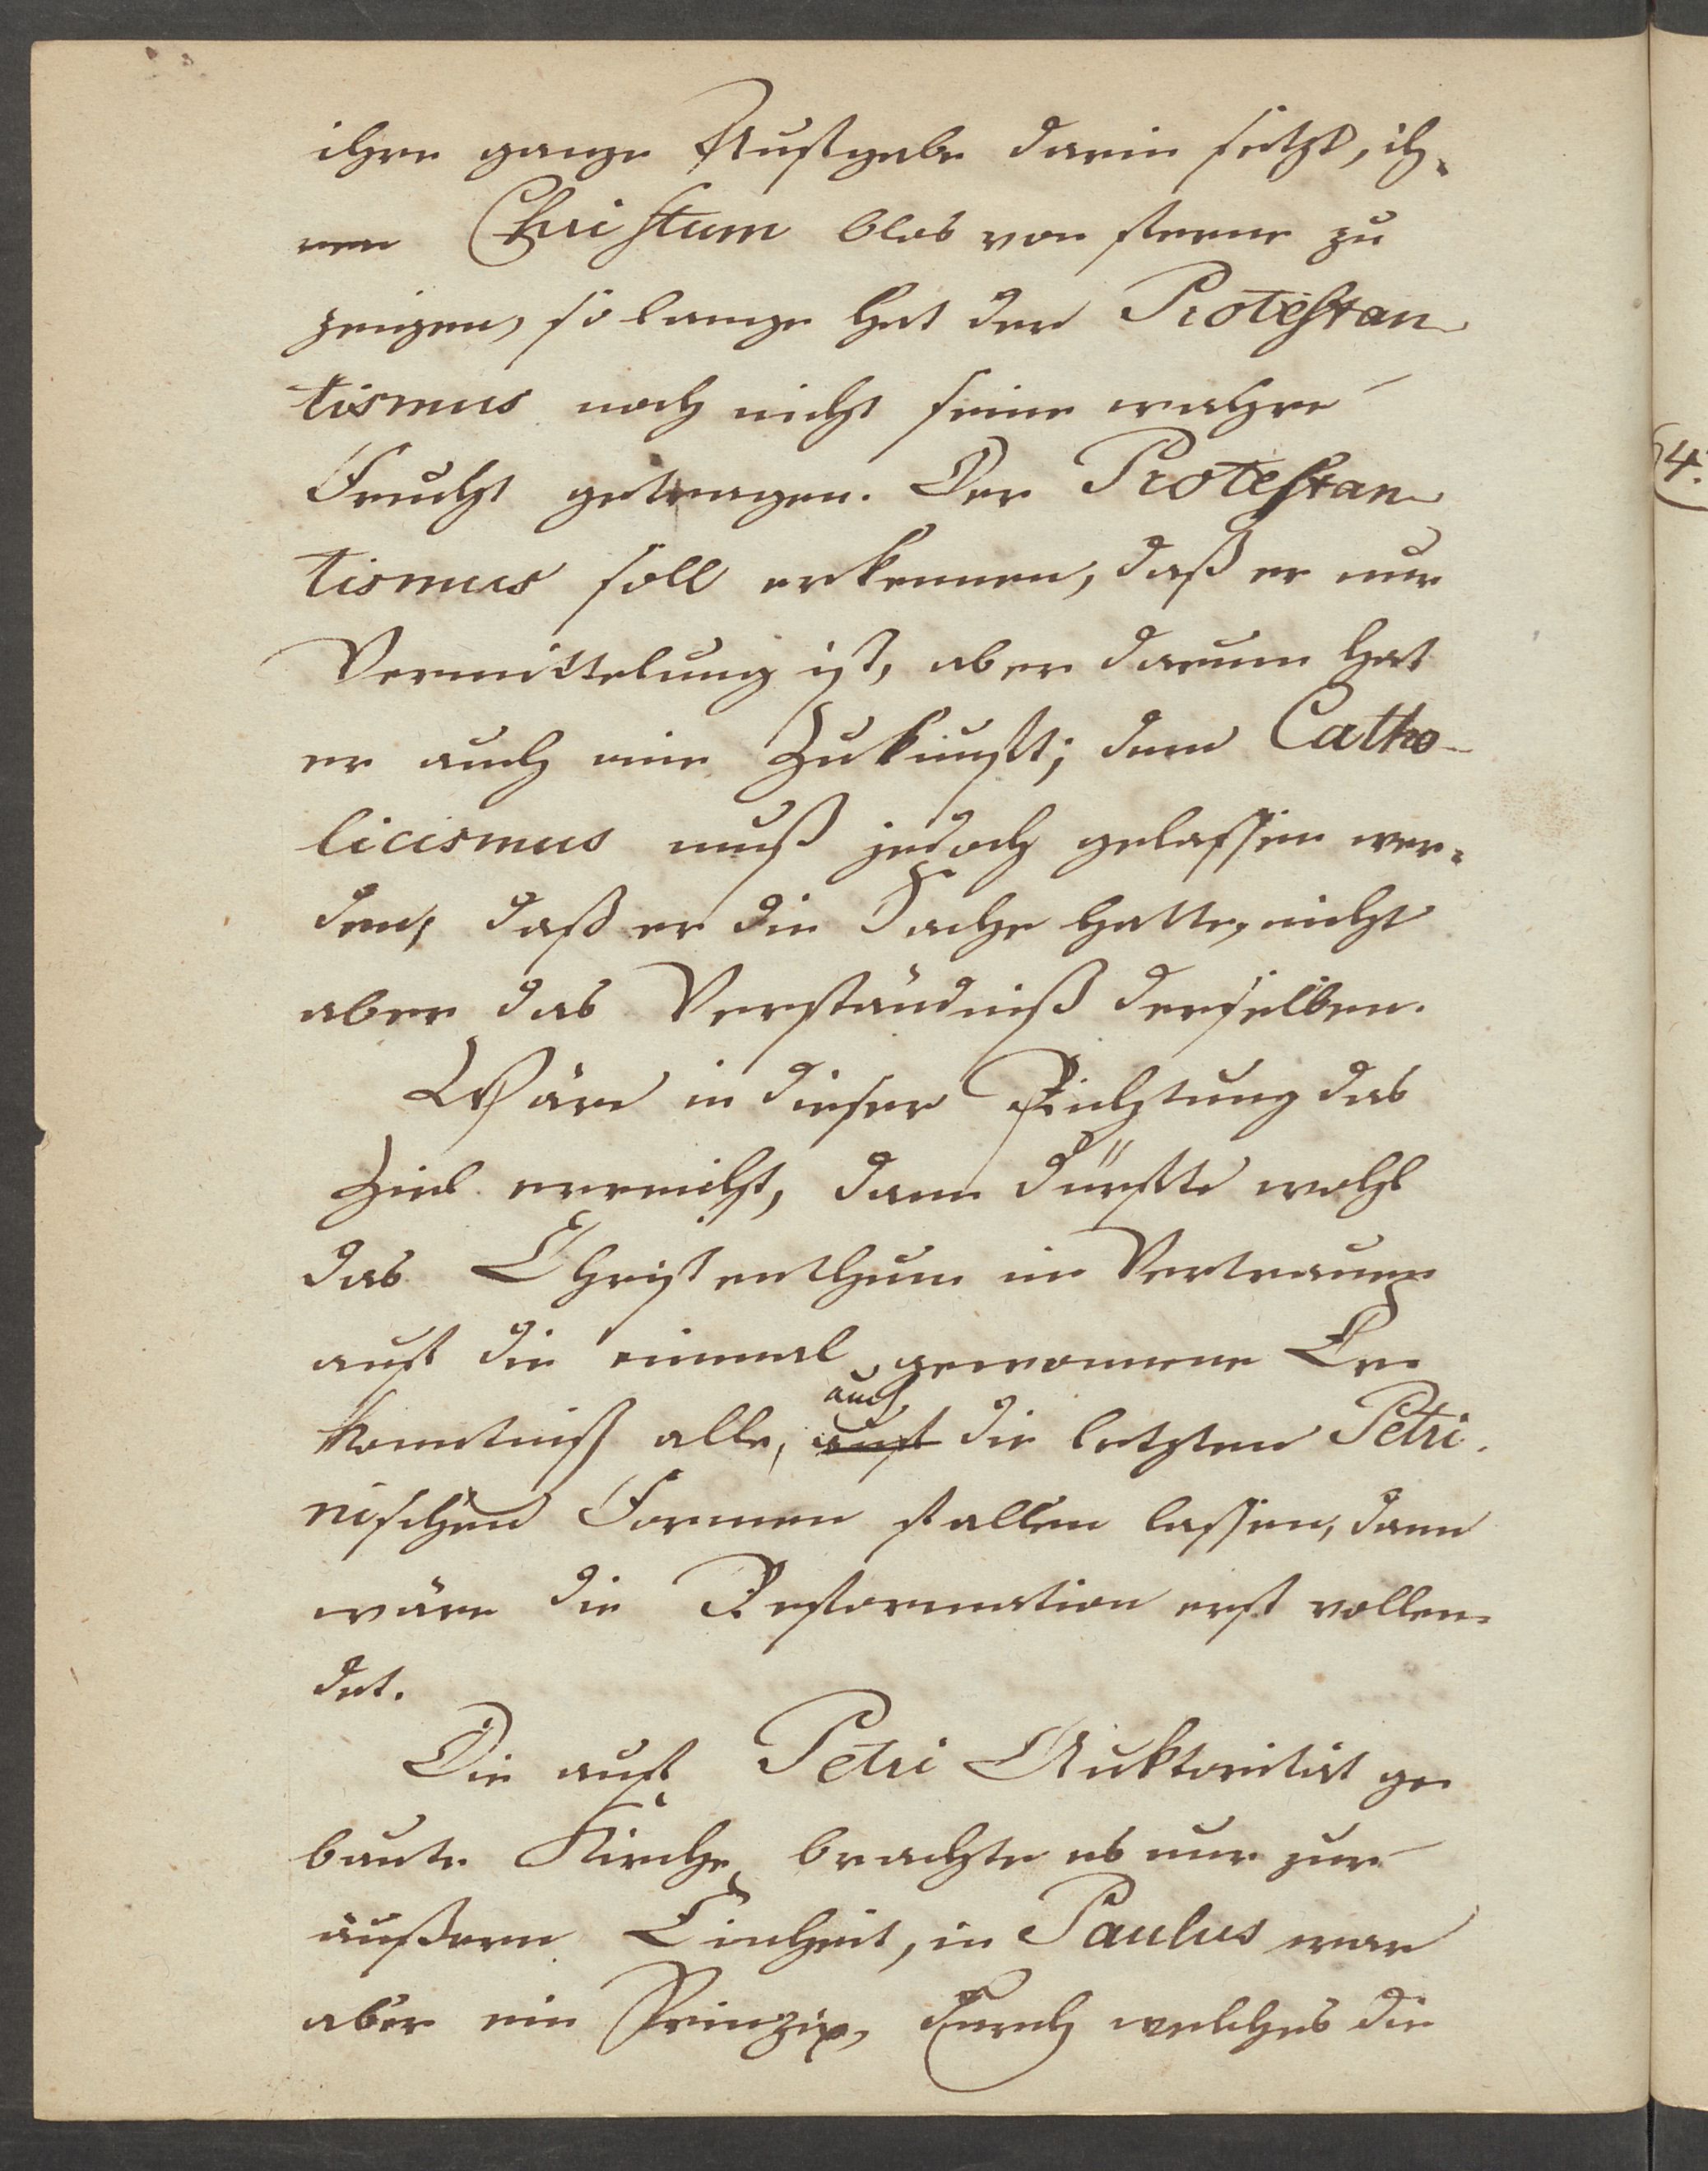 ihre ganze Aufgabe darin setzt, ih-
nen Christum blos von ferne zu
zeigen, so lange hat der Protestan-
tismus noch nicht seine wahre
Frucht getragen. Der Protestan-
tismus soll erkennen, daß er nur
Vermittelung ist, aber darum hat
er auch eine Zukunft; dem Catho-
licismus muß jedoch gelassen wer-
den, daß er die Sache hatte, nicht
aber das Verständniß derselben.
Wäre in dieser Richtung das
Ziel erreicht, dann dürfte wohl
das Christenthum im Vertrauen
auf die einmal gewonnene Er-
kenntniß alle, auch die letzten Petri-
nischen Formen fallen lassen, dann
wäre die Reformation erst vollen-
det.
Die auf Petri Auktorität ge-
baute Kirche brachte es nur zur
äußern Einheit, in Paulus war
aber ein Prinzip, durch welches die
4.